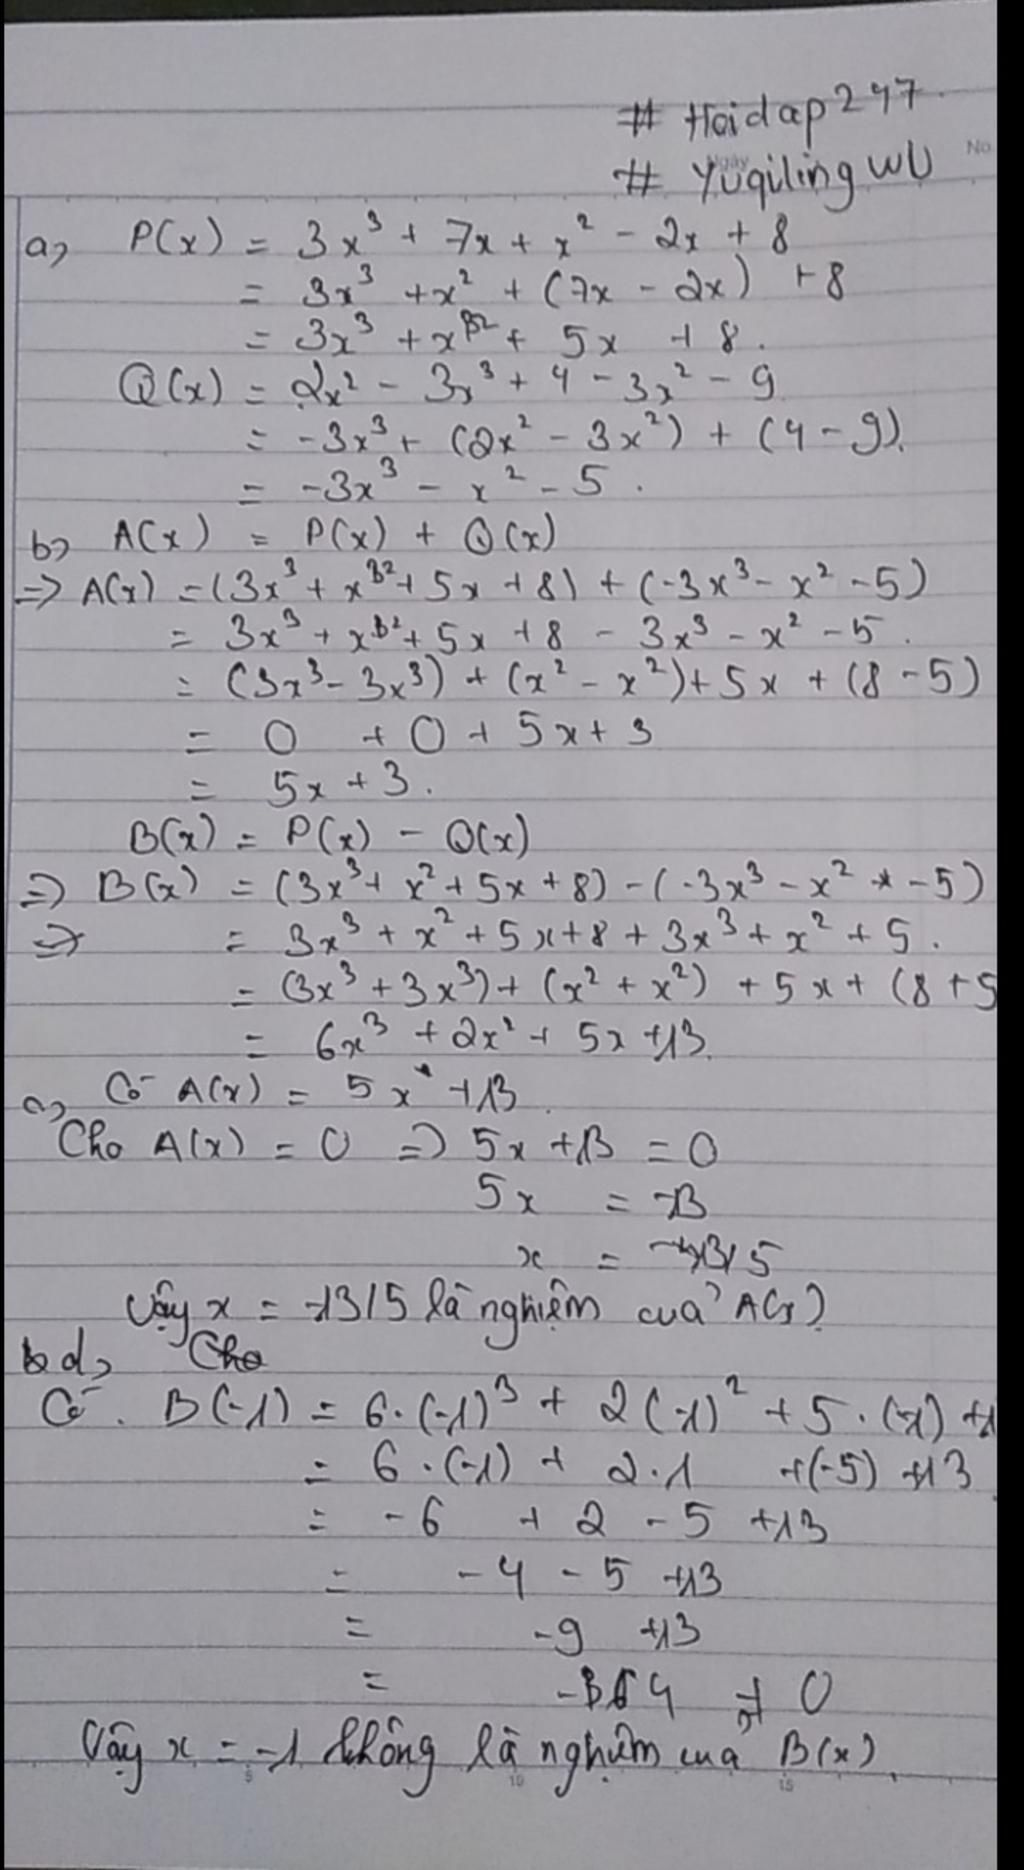 # Hoidap247
# Yuqiling WU
Ngày
No.
a, P(x) = 3x³ + 7x + x² - 2x + 8
= 3x³ + x² + (7x - 2x) + 8
= 3x³ + x² + 5x + 8.
Q(x) = 2x² - 3x³ + 4 - 3x² - 9
= -3x³ + (2x² - 3x²) + (4 - 9).
= -3x³ - x² - 5.
b, A(x) = P(x) + Q(x)
=> A(x) = (3x³ + x² + 5x + 8) + (-3x³ - x² - 5)
= 3x³ + x² + 5x + 8 - 3x³ - x² - 5.
= (3x³ - 3x³) + (x² - x²) + 5x + (8 - 5)
= 0 + 0 + 5x + 3
= 5x + 3.
B(x) = P(x) - Q(x)
=> B(x) = (3x³ + x² + 5x + 8) - (-3x³ - x² - 5)
=> = 3x³ + x² + 5x + 8 + 3x³ + x² + 5.
= (3x³ + 3x³) + (x² + x²) + 5x + (8 + 5
= 6x³ + 2x² + 5x + 13.
c, Có A(x) = 5x + 13.
Cho A(x) = 0 => 5x + 13 = 0
5x = -13
x = -13/5
Vậy x = -13/5 là nghiệm của A(x)
d, Cho
Có. B(-1) = 6.(-1)³ + 2(-1)² + 5.(-1) + 1
= 6.(-1) + 2.1 + (-5) + 13
= -6 + 2 - 5 + 13
= -4 - 5 + 13
= -9 + 13
= 4 ≠ 0
Vậy x = -1 không là nghiệm của B(x).
5 10 15